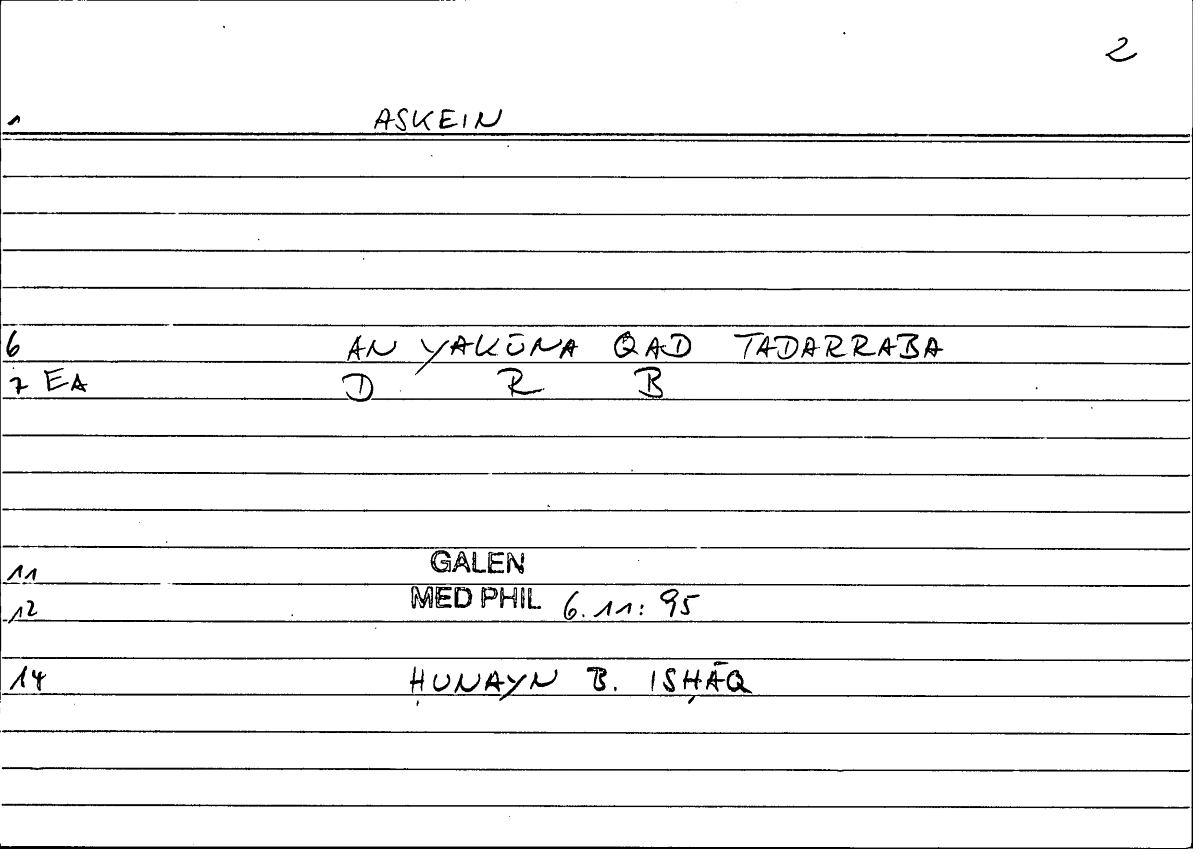 2
1 ASKEIN
6 AN YAKŪNA QAD TADARRABA
7 EA D R B
11 GALEN
12 MED PHIL 6. 11: 95
14 ḤUNAYN B. ISḤĀQ